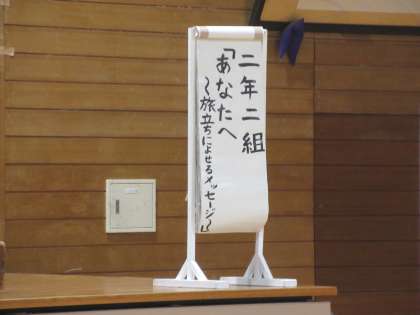 二年二組
「あなたへ
～旅立ちによせるメッセージ～」